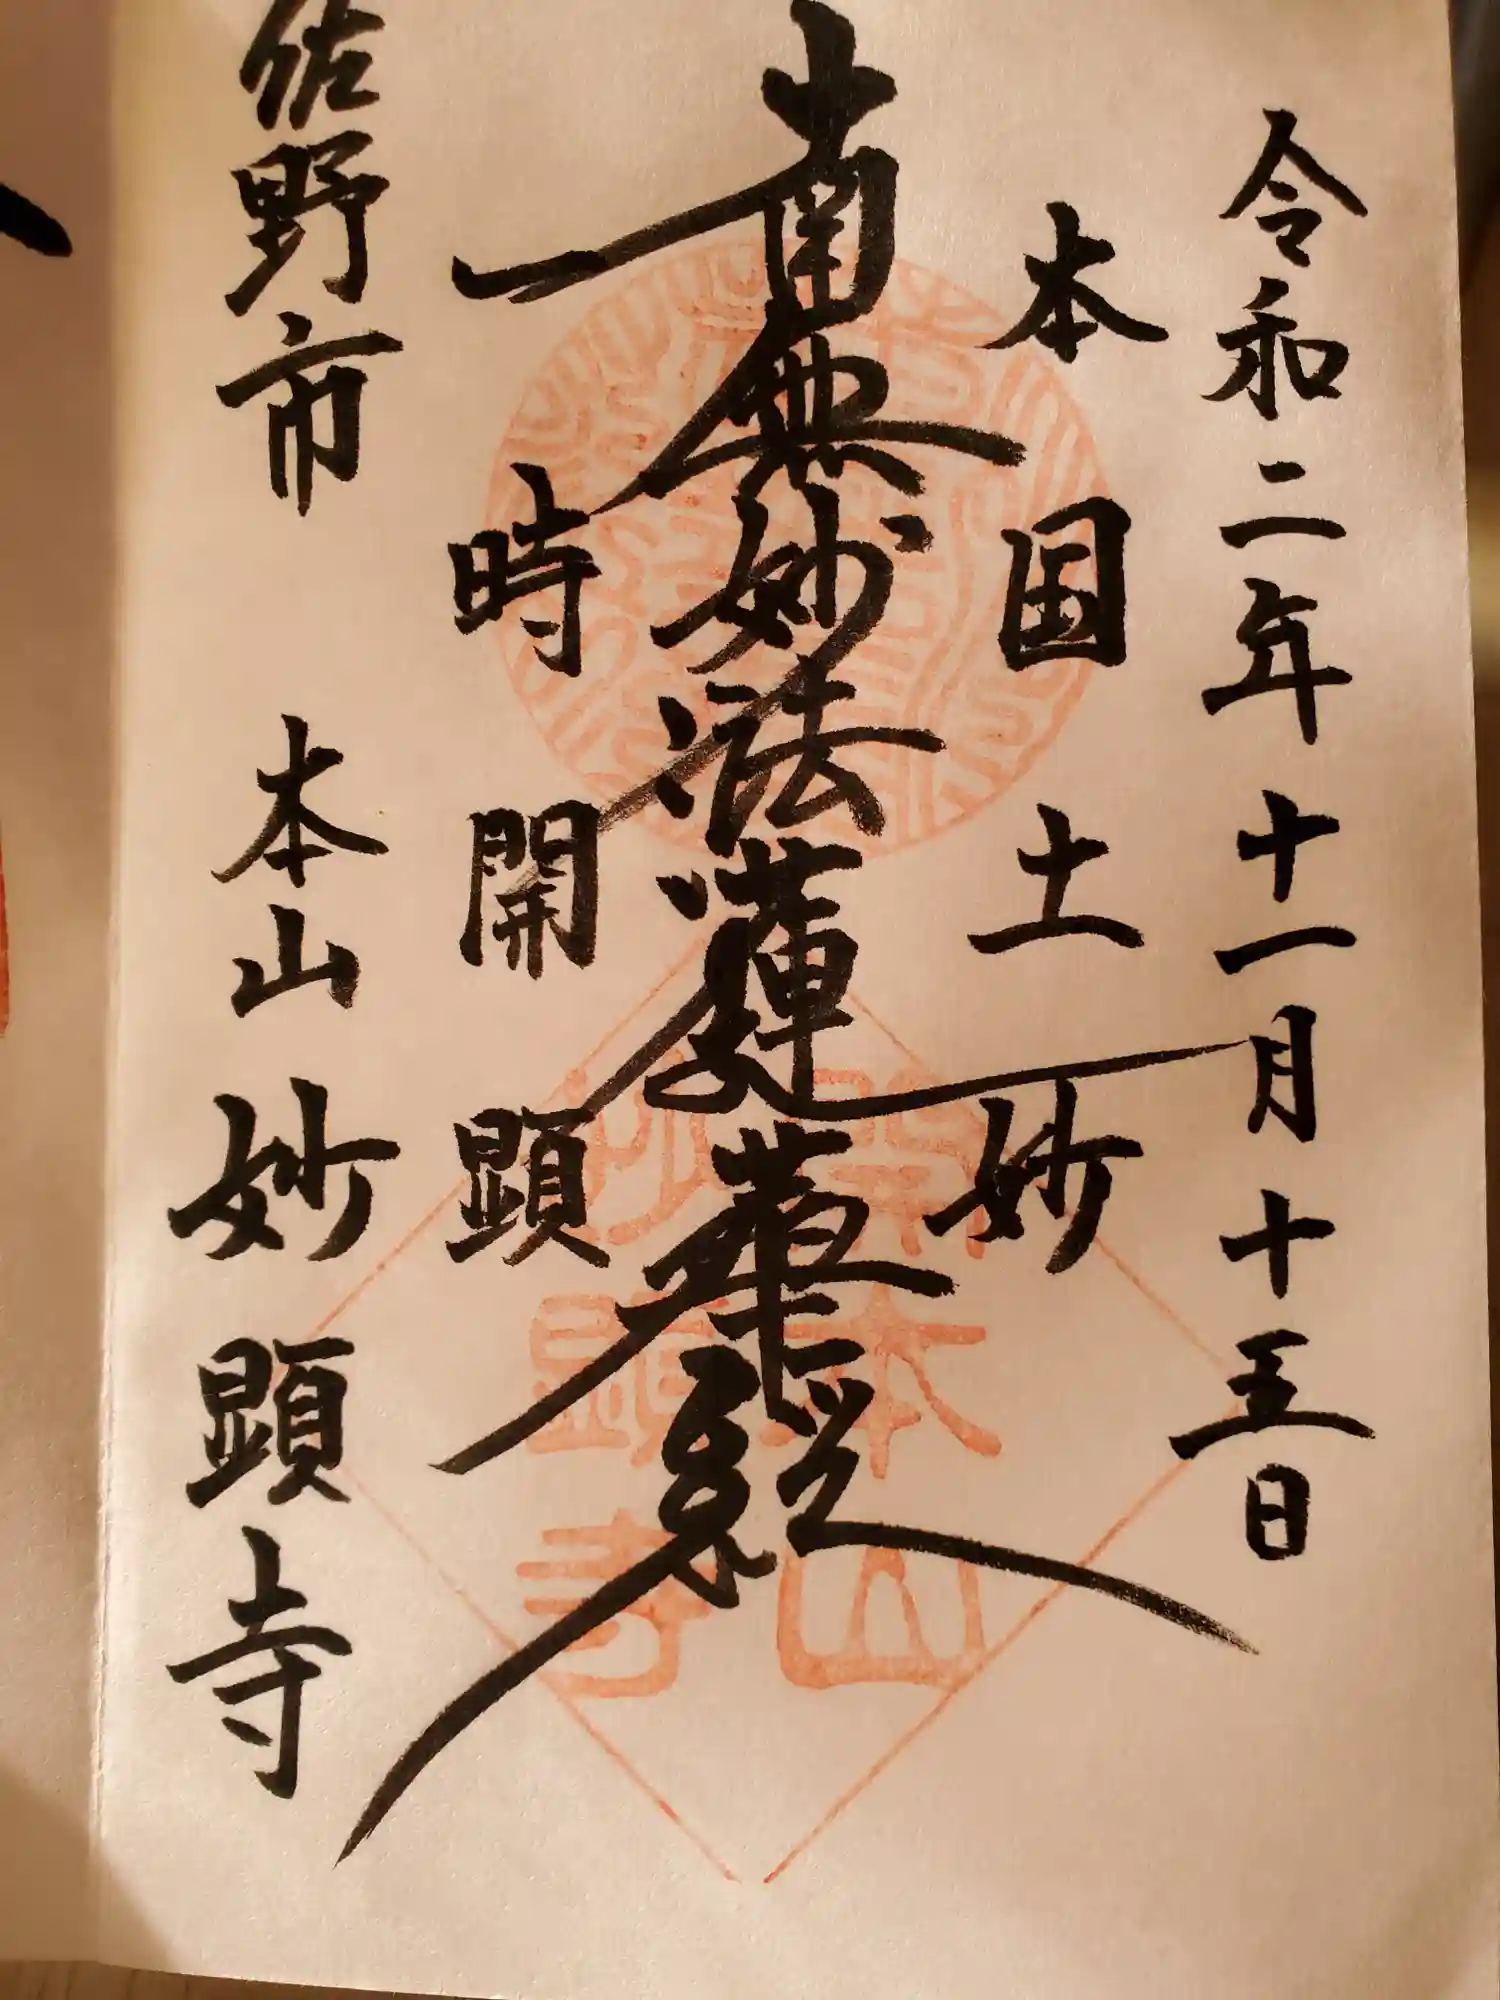 令和二年十一月十五日
本国土妙
南無妙法蓮華経
時開顕
佐野市 本山 妙顕寺
開本山
妙顕寺